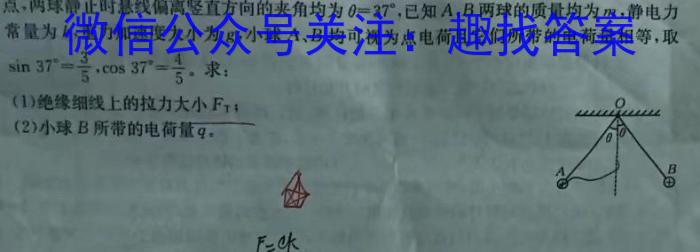 点,两球静止时悬线偏离竖直方向的夹角均为θ=37°,已知A、B两球的质量均为m,静电力
常量为k,重力加速度大小为g,小球A、B均可视为点电荷且它们所带的电荷量相等,取
微信公众号关注:趣找答案
sin 37°=3/5,cos 37°=4/5。求:
(1)绝缘细线上的拉力大小F_T;
(2)小球B所带的电荷量q。
O
θ θ
A B
F=